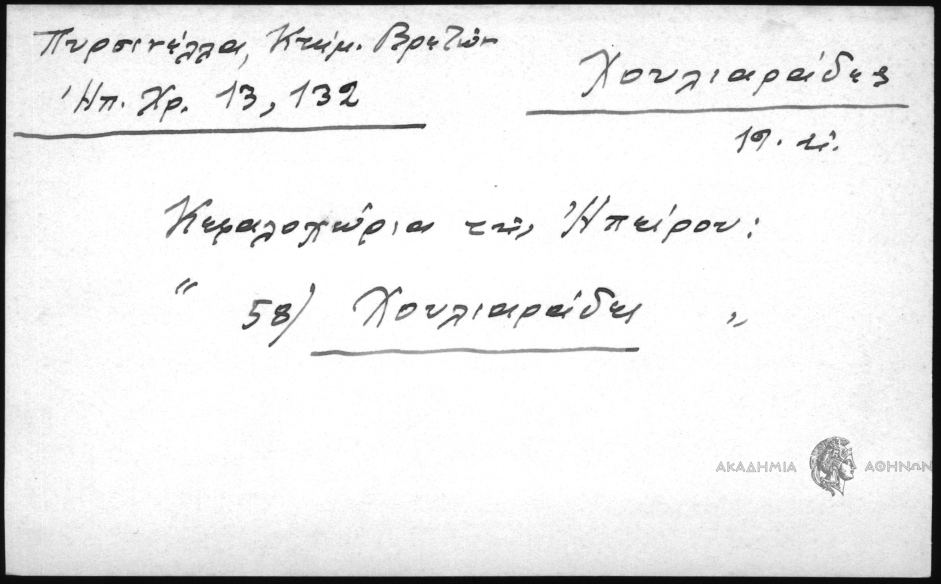 Πυρσινέλλα, Κτημ. Βρετών
Ἠπ. Χρ. 13, 132
Χουλιαράδες
19. αἰ.
Κεφαλοχώρια τῆς Ἠπείρου:
" 58) Χουλιαράδες "
ΑΚΑΔΗΜΙΑ ΑΘΗΝΩΝ